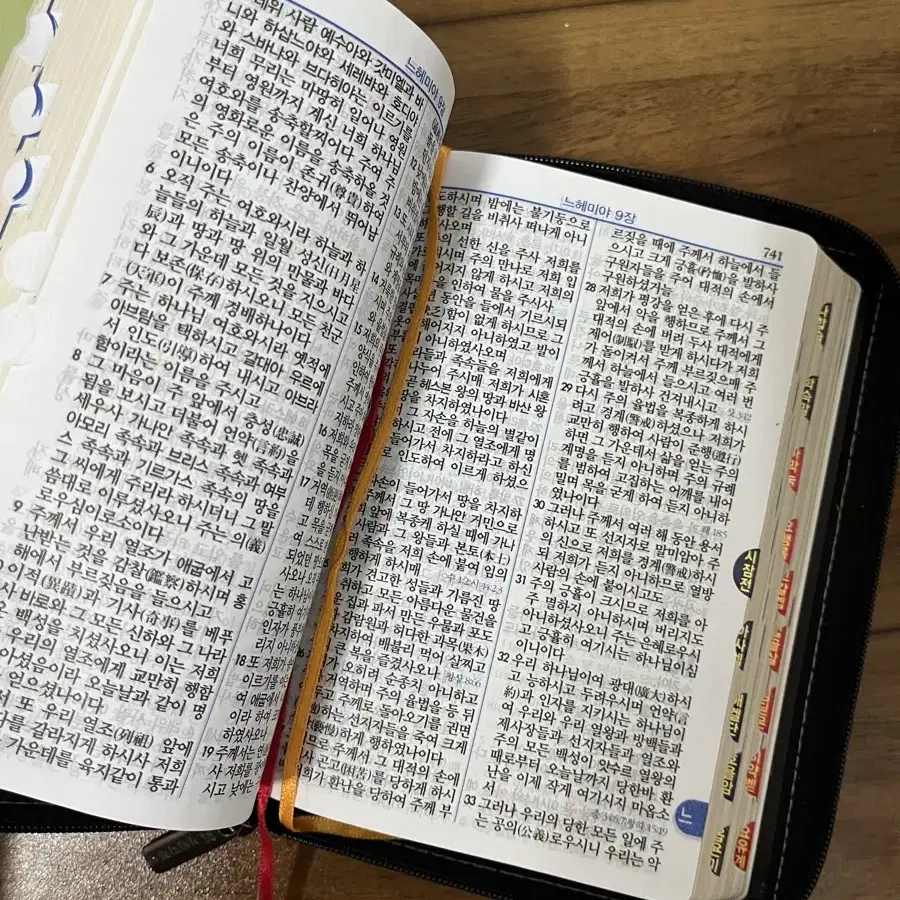 느헤미야 9장
데위 사람 예수아와 갓미엘과 바
니와 하삽느야와 세레뱌와 호디야
와 스바냐와 브다히야는 이르기를
너희 무리는 마땅히 일어나 영원
부터 영원까지 계신 너희 하나님
여호와를 송축할찌어다 주여 주
의 영화로운 이름을 송축하올 것
은 주의 이름이 존귀(尊貴)하여
모든 송축이나 찬양에서 뛰어남
이니이다
6 오직 주는 여호와시라 하늘과 하
늘들의 하늘과 일월 성신(日月星
辰)과 땅과 땅 위의 만물과 바다
와 그 가운데 모든 것을 지으시고
다 보존(保存)하시오니 모든 천군
(天軍)이 주께 경배하나이다
7 주는 하나님 여호와시라 옛적에
아브람을 택하시고 갈대아 우르에
서 인도(引導)하여 내시고 아브라
함이라는 이름을 주시고
8 그 마음이 주 앞에서 충성(忠誠)
됨을 보시고 더불어 언약(言約)을
세우사 가나안 족속과 헷 족속과
아모리 족속과 브리스 족속과 여부
스 족속과 기르가스 족속의 땅을
그 씨에게 주리라 하시더니 그 말
씀대로 이루셨사오니 주는 의(義)
로우심이로소이다
9 주께서 우리 열조가 애굽에서 고
난받는 것을 감찰(鑑察)하시며 홍
해에서 부르짖음을 들으시고
이적(異蹟)과 기사(奇事)를 베푸
사 바로와 그 모든 신하와 그 나라
백성을 치셨사오니 이는 저희가
우리의 열조에게 교만히 행함
아셨음이라 오늘날과 같이 명
얻으셨나이다
또 주께서 우리 열조(列祖) 앞에
다를 갈라지게 하시사 저희
가운데를 육지같이 통과
느헤미야 9장
741
도하시며 밤에는 불기둥으로
행할 길을 비취사 떠나게 아니
사오며
주의 선한 신을 주사 저희를
시며 주의 만나로 저희 입
어지지 않게 하시고 저희의
을 인하여 물을 주시사
년 동안을 들에서 기르시되
함이 없게 하시므로 그
해어지지 아니하였고 발이
아니하였사오며
나라들과 족속들을 저희에게
나누어 주시매 저희가 시혼
곧 헤스본 왕의 땅과 바산 왕
땅을 차지하였나이다
그 자손을 하늘의 별같이
시고 전에 그 열조에게
들어가서 차지하라고 하신
로 인도하여 이르게 하셨으
자손이 들어가서 땅을 차지하
그 땅 가나안 거민으로
앞에 복종케 하실 때에 가나
사람과 그 왕들과 본토(本土)
족속을 저희 손에 붙여 임의
행하게 하시매
저희가 견고한 성들과 기름진 땅
취하고 모든 아름다운 물건을
집과 파서 만든 우물과 포도
감람원과 허다한 과목(果木)
차지하여 배불리 먹어 살찌고
큰 복을 즐겼사오나
오히려 순종치 아니하고
거역하며 주의 율법을 등 뒤
주께로 돌아오기를 권면
는 선지자들을 죽여 크게
하게 행하였나이다
므로 주께서 그 대적의 손에
사 곤고(困苦)를 당하게 하시
가 환난을 당하여 주께 부
르짖을 때에 주께서 하늘에서 들
으시고 크게 긍휼(矜恤)을 발하사
구원자들을 주어 대적의 손에서
구원하셨거늘
28 저희가 평강을 얻은 후에 다시 주
앞에서 악을 행하므로 주께서 그
대적의 손에 버려 두사 대적에게
제어(制馭)를 받게 하시다가 저희
가 돌이켜서 주께 부르짖으매 주
께서 하늘에서 들으시고 여러 번
긍휼을 발하사 건져내시고
29 다시 주의 율법을 복종하게 하시
려고 경계(警戒)하셨으나 저희가
교만히 행하여 사람이 준행(遵行)
하면 그 가운데서 삶을 얻는 주의
계명을 듣지 아니하며 주의 규례
를 범하여 고집하는 어깨를 내어
밀며 목을 굳게 하여 듣지 아니하
였나이다
30 그러나 주께서 여러 해 동안 용서
하시고 또 선지자로 말미암아 주
의 신으로 저희를 경계(警戒)하시
되 저희가 듣지 아니하므로 열방
사람의 손에 붙이시고도
31 주의 긍휼이 크시므로 저희를 아
주 멸하지 아니하시며 버리지도
아니하셨사오니 주는 은혜로우시
고 긍휼히 여기시는 하나님이심
이니이다
32 우리 하나님이여 광대(廣大)하시
고 능하시고 두려우시며 언약(言
約)과 인자를 지키시는 하나님이
여 우리와 우리 열왕과 방백들과
제사장들과 선지자들과 열조와
주의 모든 백성이 앗수르 열왕의
때로부터 오늘날까지 당한바 환
난을 이제 작게 여기시지 마옵소
서
33 그러나 우리의 당한 모든 일에 주
는 공의(公義)로우시니 우리는 악
느